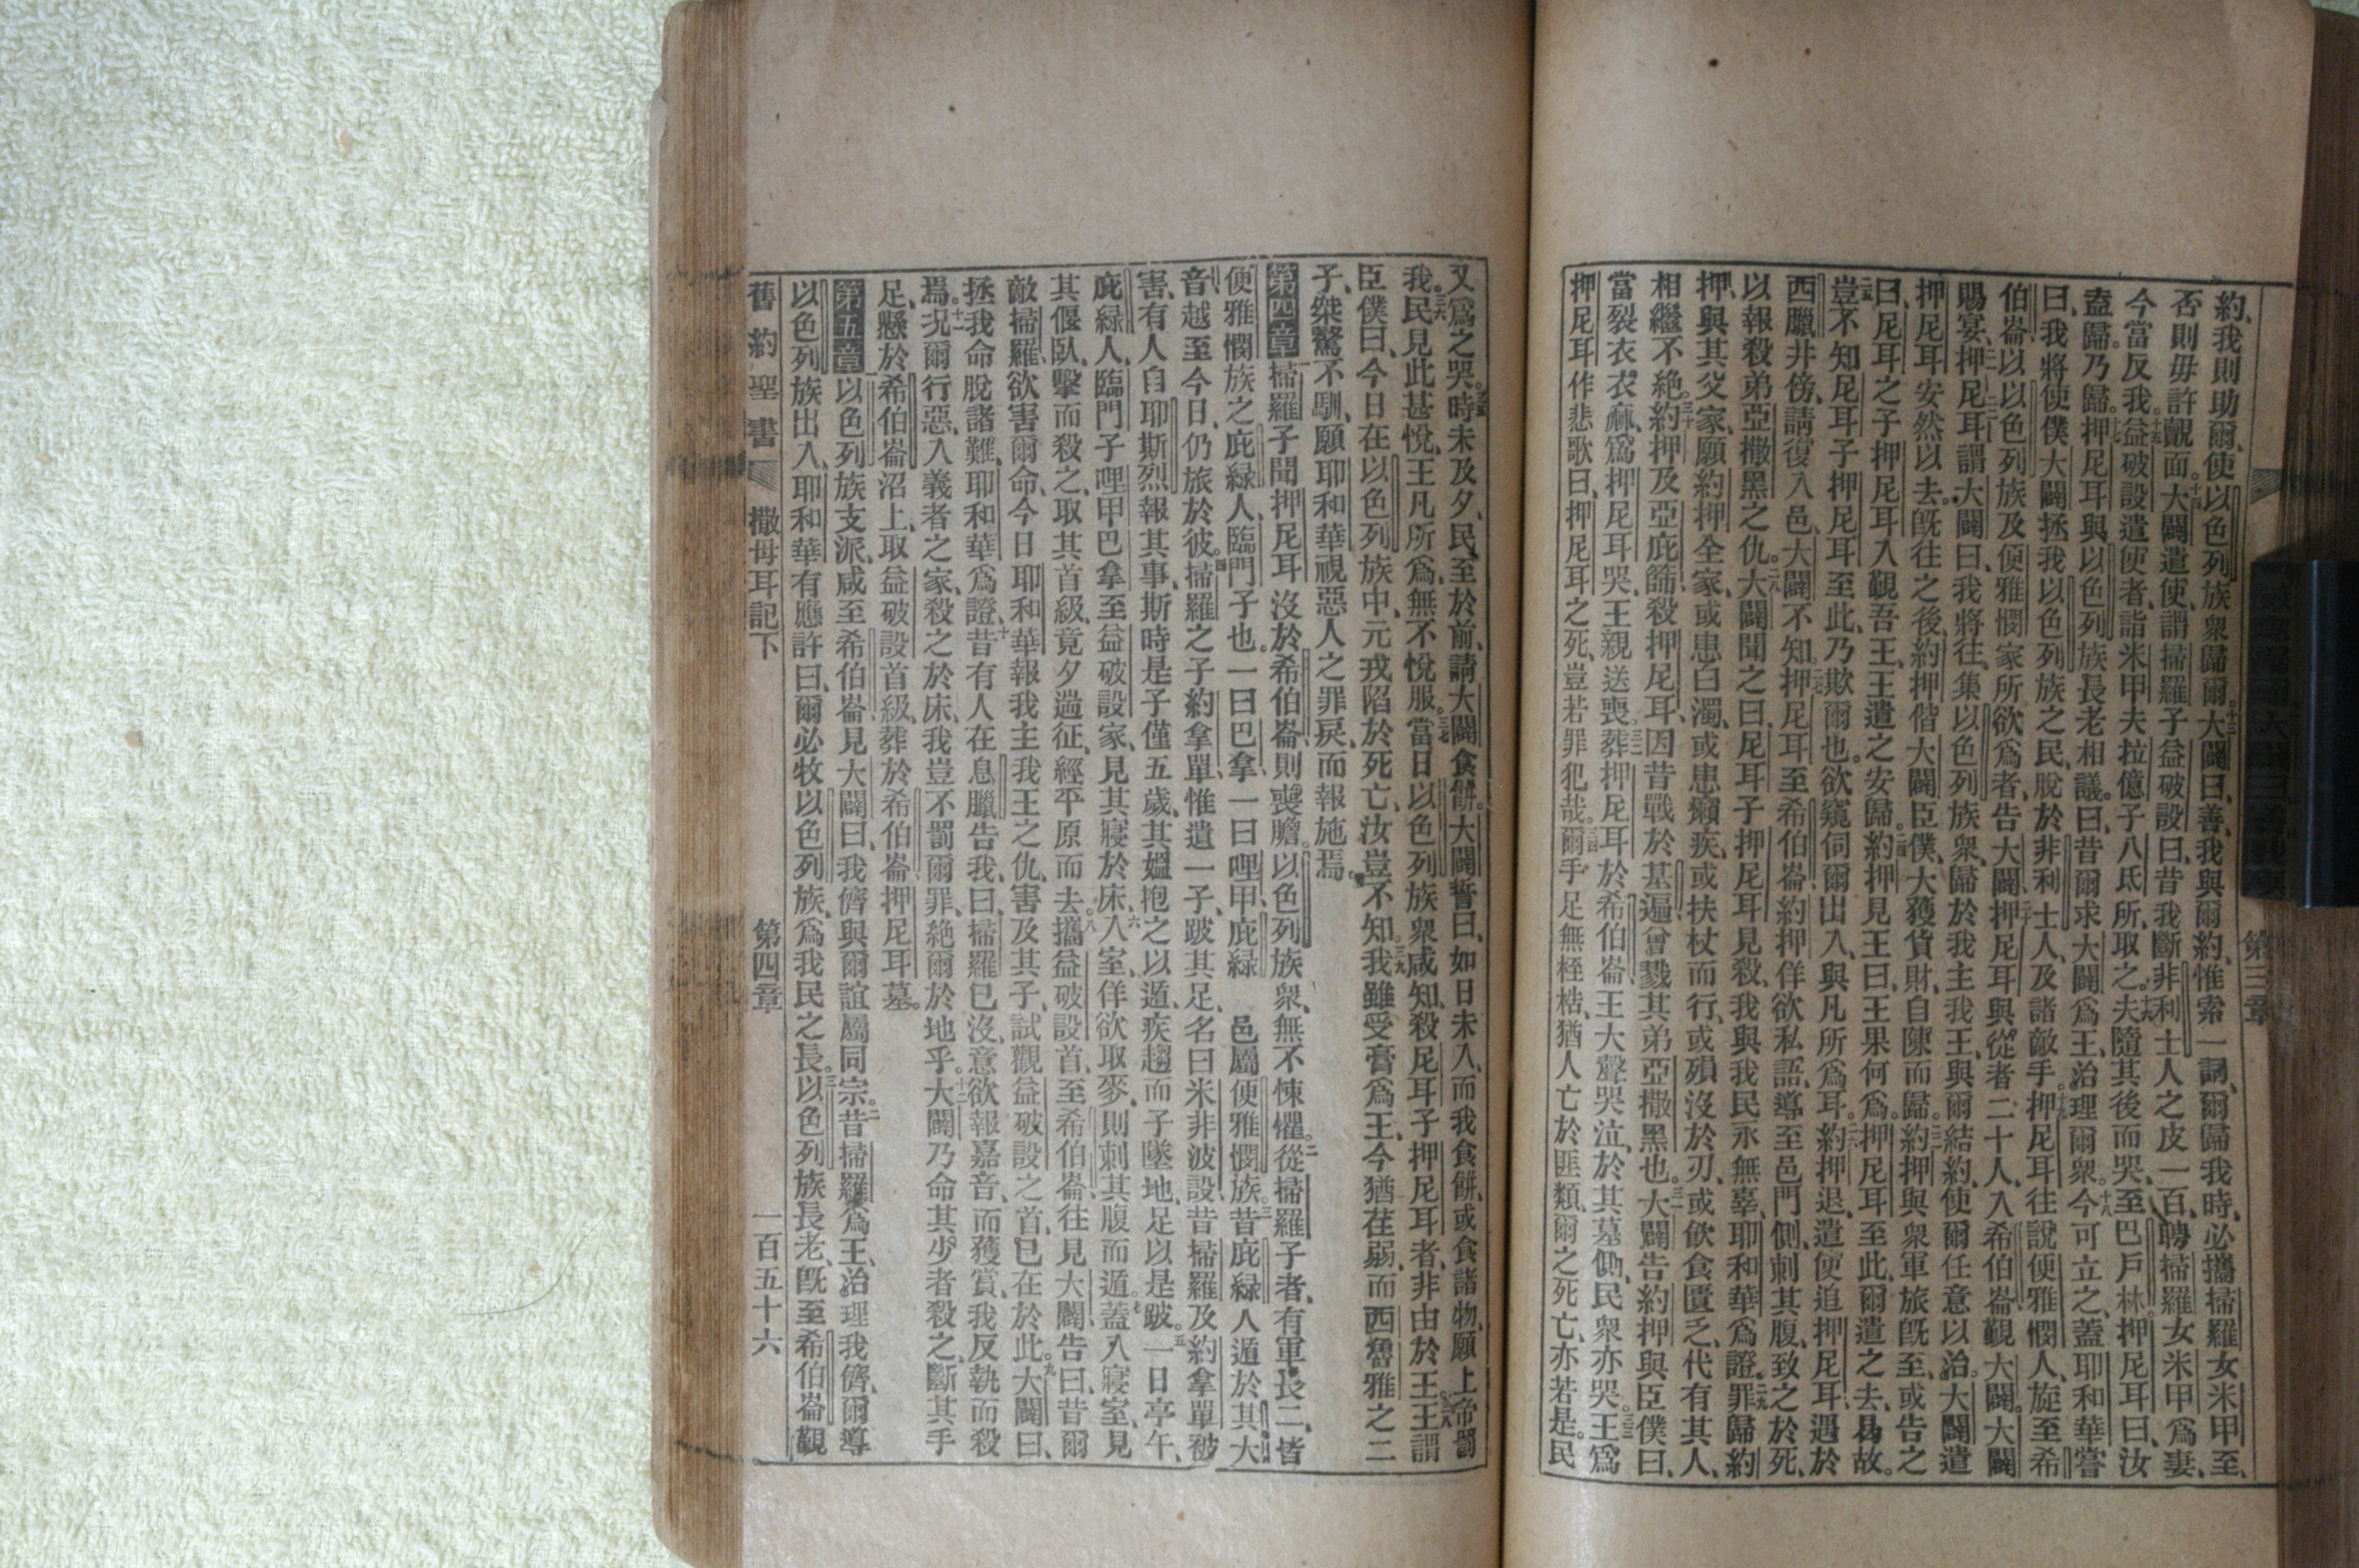 約、我則助爾、使以色列族衆歸爾。十三大闢曰、善、我與爾約、惟索一詞、爾歸我時、必攜掃羅女米甲至、
否則毋許覿面。十四大闢遣使、謂掃羅子益破設曰、昔我斷非利士人之皮一百、聘掃羅女米甲爲妻、
今當反我。十五益破設遣使者、詣米甲夫拉億子八氐所、取之。十六夫隨其後而哭、至巴戶林。押尼耳曰、汝
盍歸。乃歸。十七押尼耳與以色列族長老相議。曰、昔爾求大闢爲王、治理爾衆。十八今可立之、蓋耶和華嘗
曰、我將使僕大闢拯我以色列族之民、脫於非利士人、及諸敵手。十九押尼耳往說便雅憫人、旋至希
伯崙、以以色列族及便雅憫家所欲爲者、告大闢。二十押尼耳與從者二十人、入希伯崙覲大闢。大闢
賜宴。二一押尼耳謂大闢曰、我將往、集以色列族衆、歸於我主我王、與爾結約、使爾任意以治。大闢遣
押尼耳安然以去。既往之後、約押偕大闢臣僕、大獲貨財、自陳而歸。二三約押與衆軍旅既至、或告之
曰、尼耳之子押尼耳入覲吾王、王遣之安歸。二四約押見王曰、王果何爲。押尼耳至此、爾遣之去、曷故。
二五豈不知尼耳子押尼耳至此、乃欺爾也。欲窺伺爾出入、與凡所爲耳。二六約押退、遣使追押尼耳、遇於
西臘井傍、請復入邑、大闢不知。二七押尼耳至希伯崙、約押佯欲私語、導至邑門側、刺其腹、致之於死、
以報殺弟亞撒黑之仇。二八大闢聞之曰、尼耳子押尼耳見殺、我與我民永無辜、耶和華爲證。二九罪歸約
押、與其父家、願約押全家、或患白濁、或患癩疾、或扶杖而行、或殞沒於刃、或飲食匱乏、代有其人、
相繼不絕。三十約押及亞庇篩殺押尼耳、因昔戰於基遍、曾戮其弟亞撒黑也。三一大闢告約押與臣僕曰、
當裂衣衣麻、爲押尼耳哭、王親送喪。三二葬押尼耳於希伯崙、王大聲哭泣、於其墓側、民衆亦哭。三三王爲
押尼耳作悲歌曰、押尼耳之死、豈若罪犯哉。三四爾手足無桎梏、猶人亡於匪類、爾之死亡、亦若是。民
第三章
又爲之哭。三五時未及夕、民至於前、請大闢食餅。大闢誓曰、如日未入、而我食餅、或食諸物、願上帝罰
我。三六民見此甚悅、王凡所爲、無不悅服。三七當日以色列族衆咸知、殺尼耳子押尼耳者、非由於王。三八王謂
臣僕曰、今日在以色列族中、元戎陷於死亡、汝豈不知。三九我雖受膏爲王、今猶荏弱、而西魯雅之二
子、桀驁不馴、願耶和華視惡人之罪戾、而報施焉。
第四章 一掃羅子聞押尼耳沒於希伯崙、則喪膽。以色列族衆、無不悚懼。二從掃羅子者、有軍長二、皆
便雅憫族之庇綠人、臨門子也。一曰巴拿、一曰哩甲、庇綠 邑屬便雅憫族。三昔庇綠人遁於其大
音、越至今日、仍旅於彼。四掃羅之子約拿單、惟遺一子、跛其足、名曰米非波設、昔掃羅及約拿單被
害、有人自耶斯烈報其事、斯時是子僅五歲、其媼抱之以遁、疾趨而子墜地、足以是跛。五一日亭午、
庇綠人、臨門子哩甲巴拿至益破設家、見其寢於床、六入室、佯欲取麥、則刺其腹而遁。七蓋入寢室、見
其偃臥、擊而殺之、取其首級、竟夕遄征、經平原而去。八攜益破設首、至希伯崙、往見大闢、告曰、昔爾
敵掃羅、欲害爾命、今日耶和華報我主我王之仇、害及其子、試觀益破設之首、已在於此。九大闢曰、
拯我命脫諸難、耶和華爲證、十昔有人在息臘告我、曰、掃羅已沒、意欲報嘉音、而獲賞、我反執而殺
焉。十一況爾行惡、入義者之家、殺之於床、我豈不罰爾罪、絕爾於地乎。十二大闢乃命其少者殺之、斷其手
足、懸於希伯崙沼上、取益破設首級、葬於希伯崙、押尼耳墓。
第五章 一以色列族支派、咸至希伯崙、見大闢曰、我儕與爾誼屬同宗。二昔掃羅爲王、治理我儕、爾導
以色列族出入、耶和華有應許曰、爾必牧以色列族、爲我民之長。三以色列族長老、既至希伯崙覲
舊約聖書 撒母耳記下 第四章 一百五十六